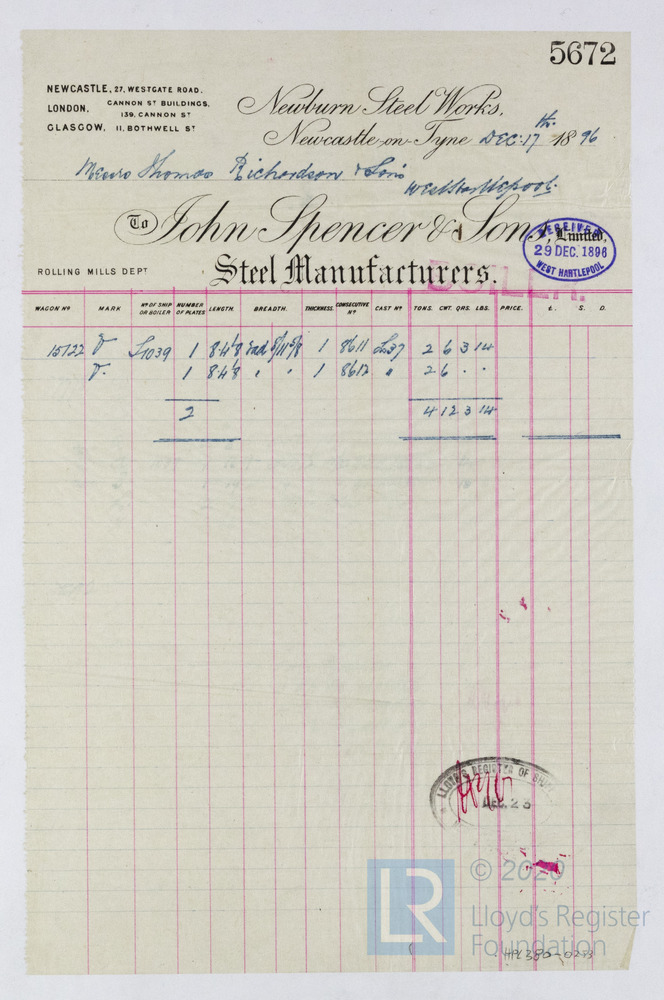 5672
NEWCASTLE, 27, WESTGATE ROAD.
LONDON, CANNON ST BUILDINGS,
139, CANNON ST
GLASGOW, 11, BOTHWELL ST
Newburn Steel Works,
Newcastle-on-Tyne DEC. 17th 1896
Messrs Thomas Richardson & Sons
West Hartlepool.
To John Spencer & Sons, Limited,
RECEIVED
29 DEC. 1896
WEST HARTLEPOOL
ROLLING MILLS DEPT
Steel Manufacturers.
BOILER.
WAGON No MARK No OF SHIP OR BOILER NUMBER OF PLATES LENGTH. BREADTH. THICKNESS. CONSECUTIVE No CAST No TONS. CWT. QRS. LBS. PRICE. £. S. D.
15122 1039 1 1 8611 37 2 6 3 14
1 " " 1 8612 " 2 6 . .
2 4 12 3 14
LLOYD'S REGISTER OF
DEC. 23
LR
© 2020
Lloyd's Register
Foundation